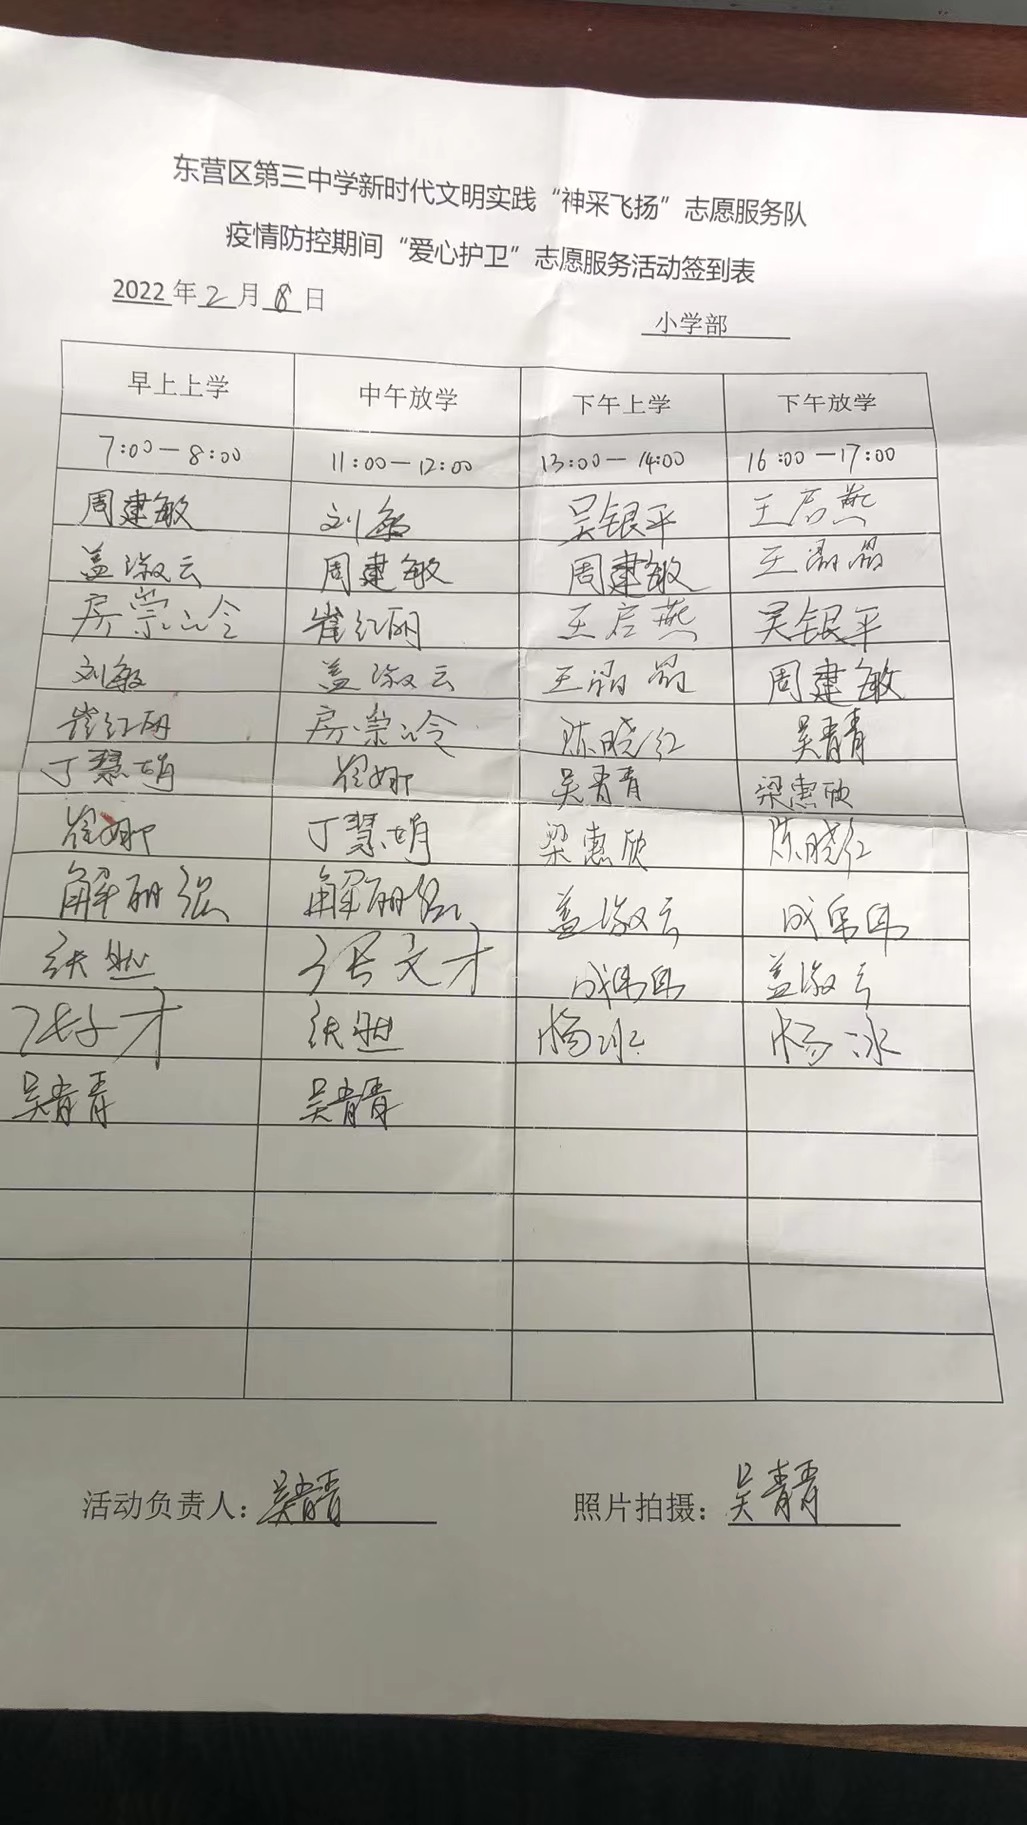 东营区第三中学新时代文明实践“神采飞扬”志愿服务队
疫情防控期间“爱心护卫”志愿服务活动签到表
2022年2月8日
小学部
早上上学 中午放学 下午上学 下午放学
7:00—8:00 11:00—12:00 13:00—14:00 16:00—17:00
周建敏 刘敏 吴银平 王启燕
盖淑云 周建敏 周建敏 王晶晶
房崇泠 崔红丽 王启燕 吴银平
刘敏 盖淑云 王晶晶 周建敏
崔红丽 房崇泠 陈晓红 吴青青
丁慧娟 崔娜 吴青青 梁惠欣
崔娜 丁慧娟 梁惠欣 陈晓红
解丽 解丽 盖淑云 成伟伟
张文才 成伟伟 盖淑云
才 杨冰 杨冰
吴青青 吴青青
活动负责人：吴青青 照片拍摄：吴青青